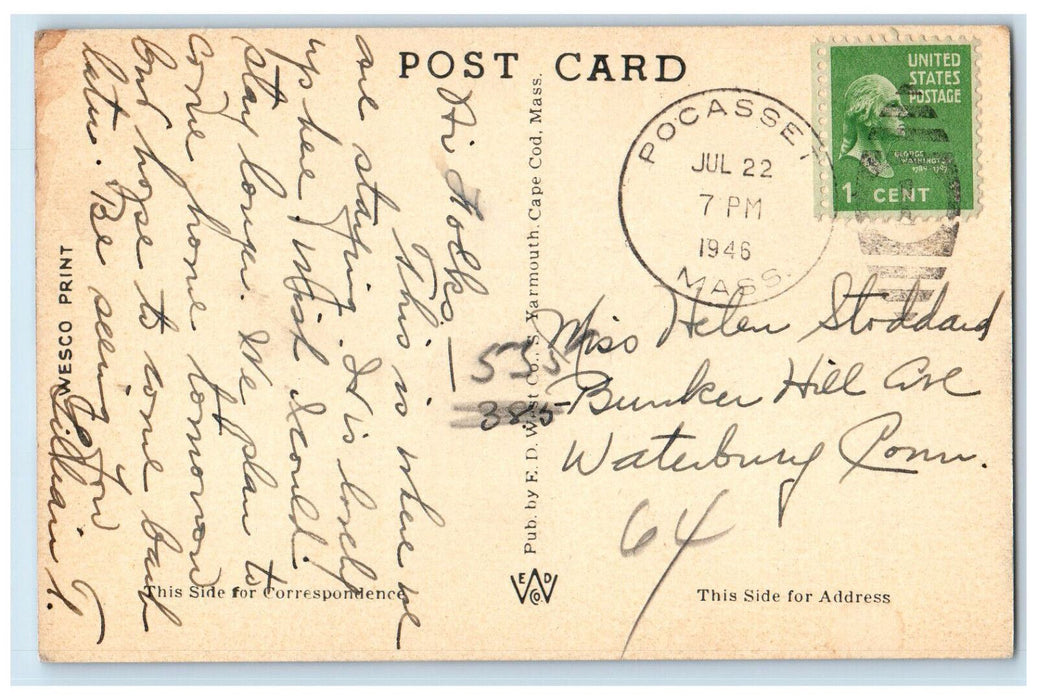 POST CARD
UNITED
STATES
POSTAGE
GEORGE
WASHINGTON
1789-1797
1 CENT
POCASSET
JUL 22
7 PM
1946
MASS.
Hi Folks —
This is where we
are staying. It is lovely
up here. Wish I could
stay longer. We plan to
come home tomorrow
but hope to come back
later. Be seeing you
Lillian T.
535
385
Miss Helen Stoddard
Bunker Hill Ave
Waterbury Conn.
64
Pub. by E. D. West Co., S. Yarmouth, Cape Cod, Mass.
WESCO PRINT
E D
W
Co
This Side for Correspondence
This Side for Address